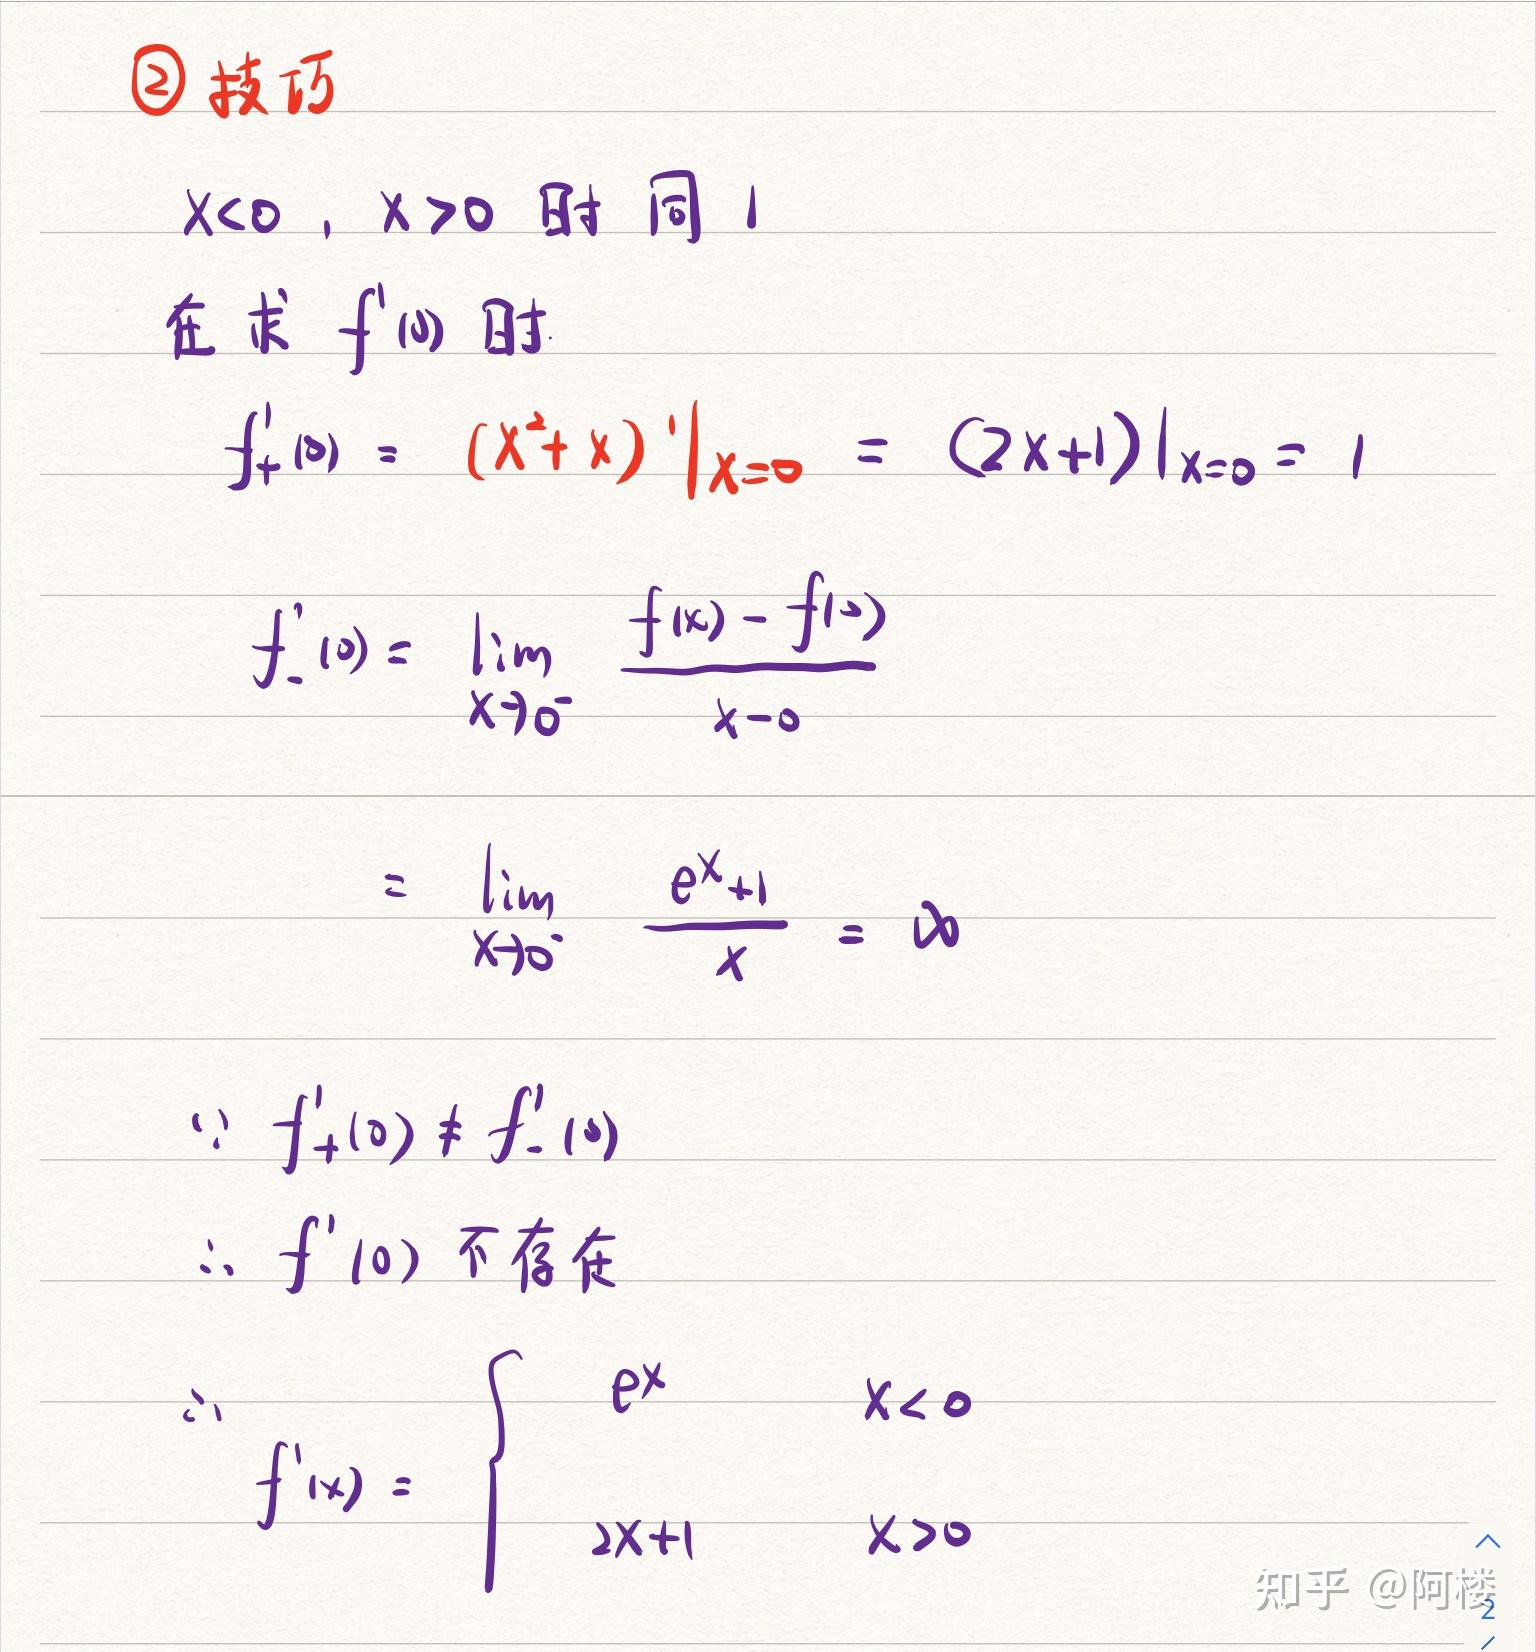 ② 技巧
x<0, x>0 时 同 1
在 求 f'(0) 时.
f'₊(0) = (x²+x)'|ₓ₌₀ = (2x+1)|ₓ₌₀ = 1
f'₋(0) = lim x→0⁻ (f(x) - f(0))/(x-0)
= lim x→0⁻ (eˣ+1)/x = ∞
∵ f'₊(0) ≠ f'₋(0)
∴ f'(0) 不存在
∴ f'(x) = { eˣ x<0
2x+1 x>0
知乎 @阿楼
2